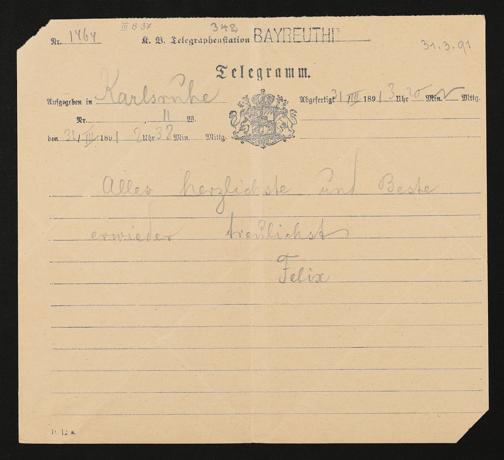 III B 37
348
Nr. 1464 K. B. Telegraphenstation BAYREUTH
31.3.91
Telegramm.
Aufgegeben in Karlsruhe
Abgefertigt 31/III 1891 3 Uhr 20 Min. N Mittg.
Nr. 11 W.
den 31/III 1891 2 Uhr 32 Min. Mittg.
Alles herzlichste und Beste
erwieder treulichst
Felix